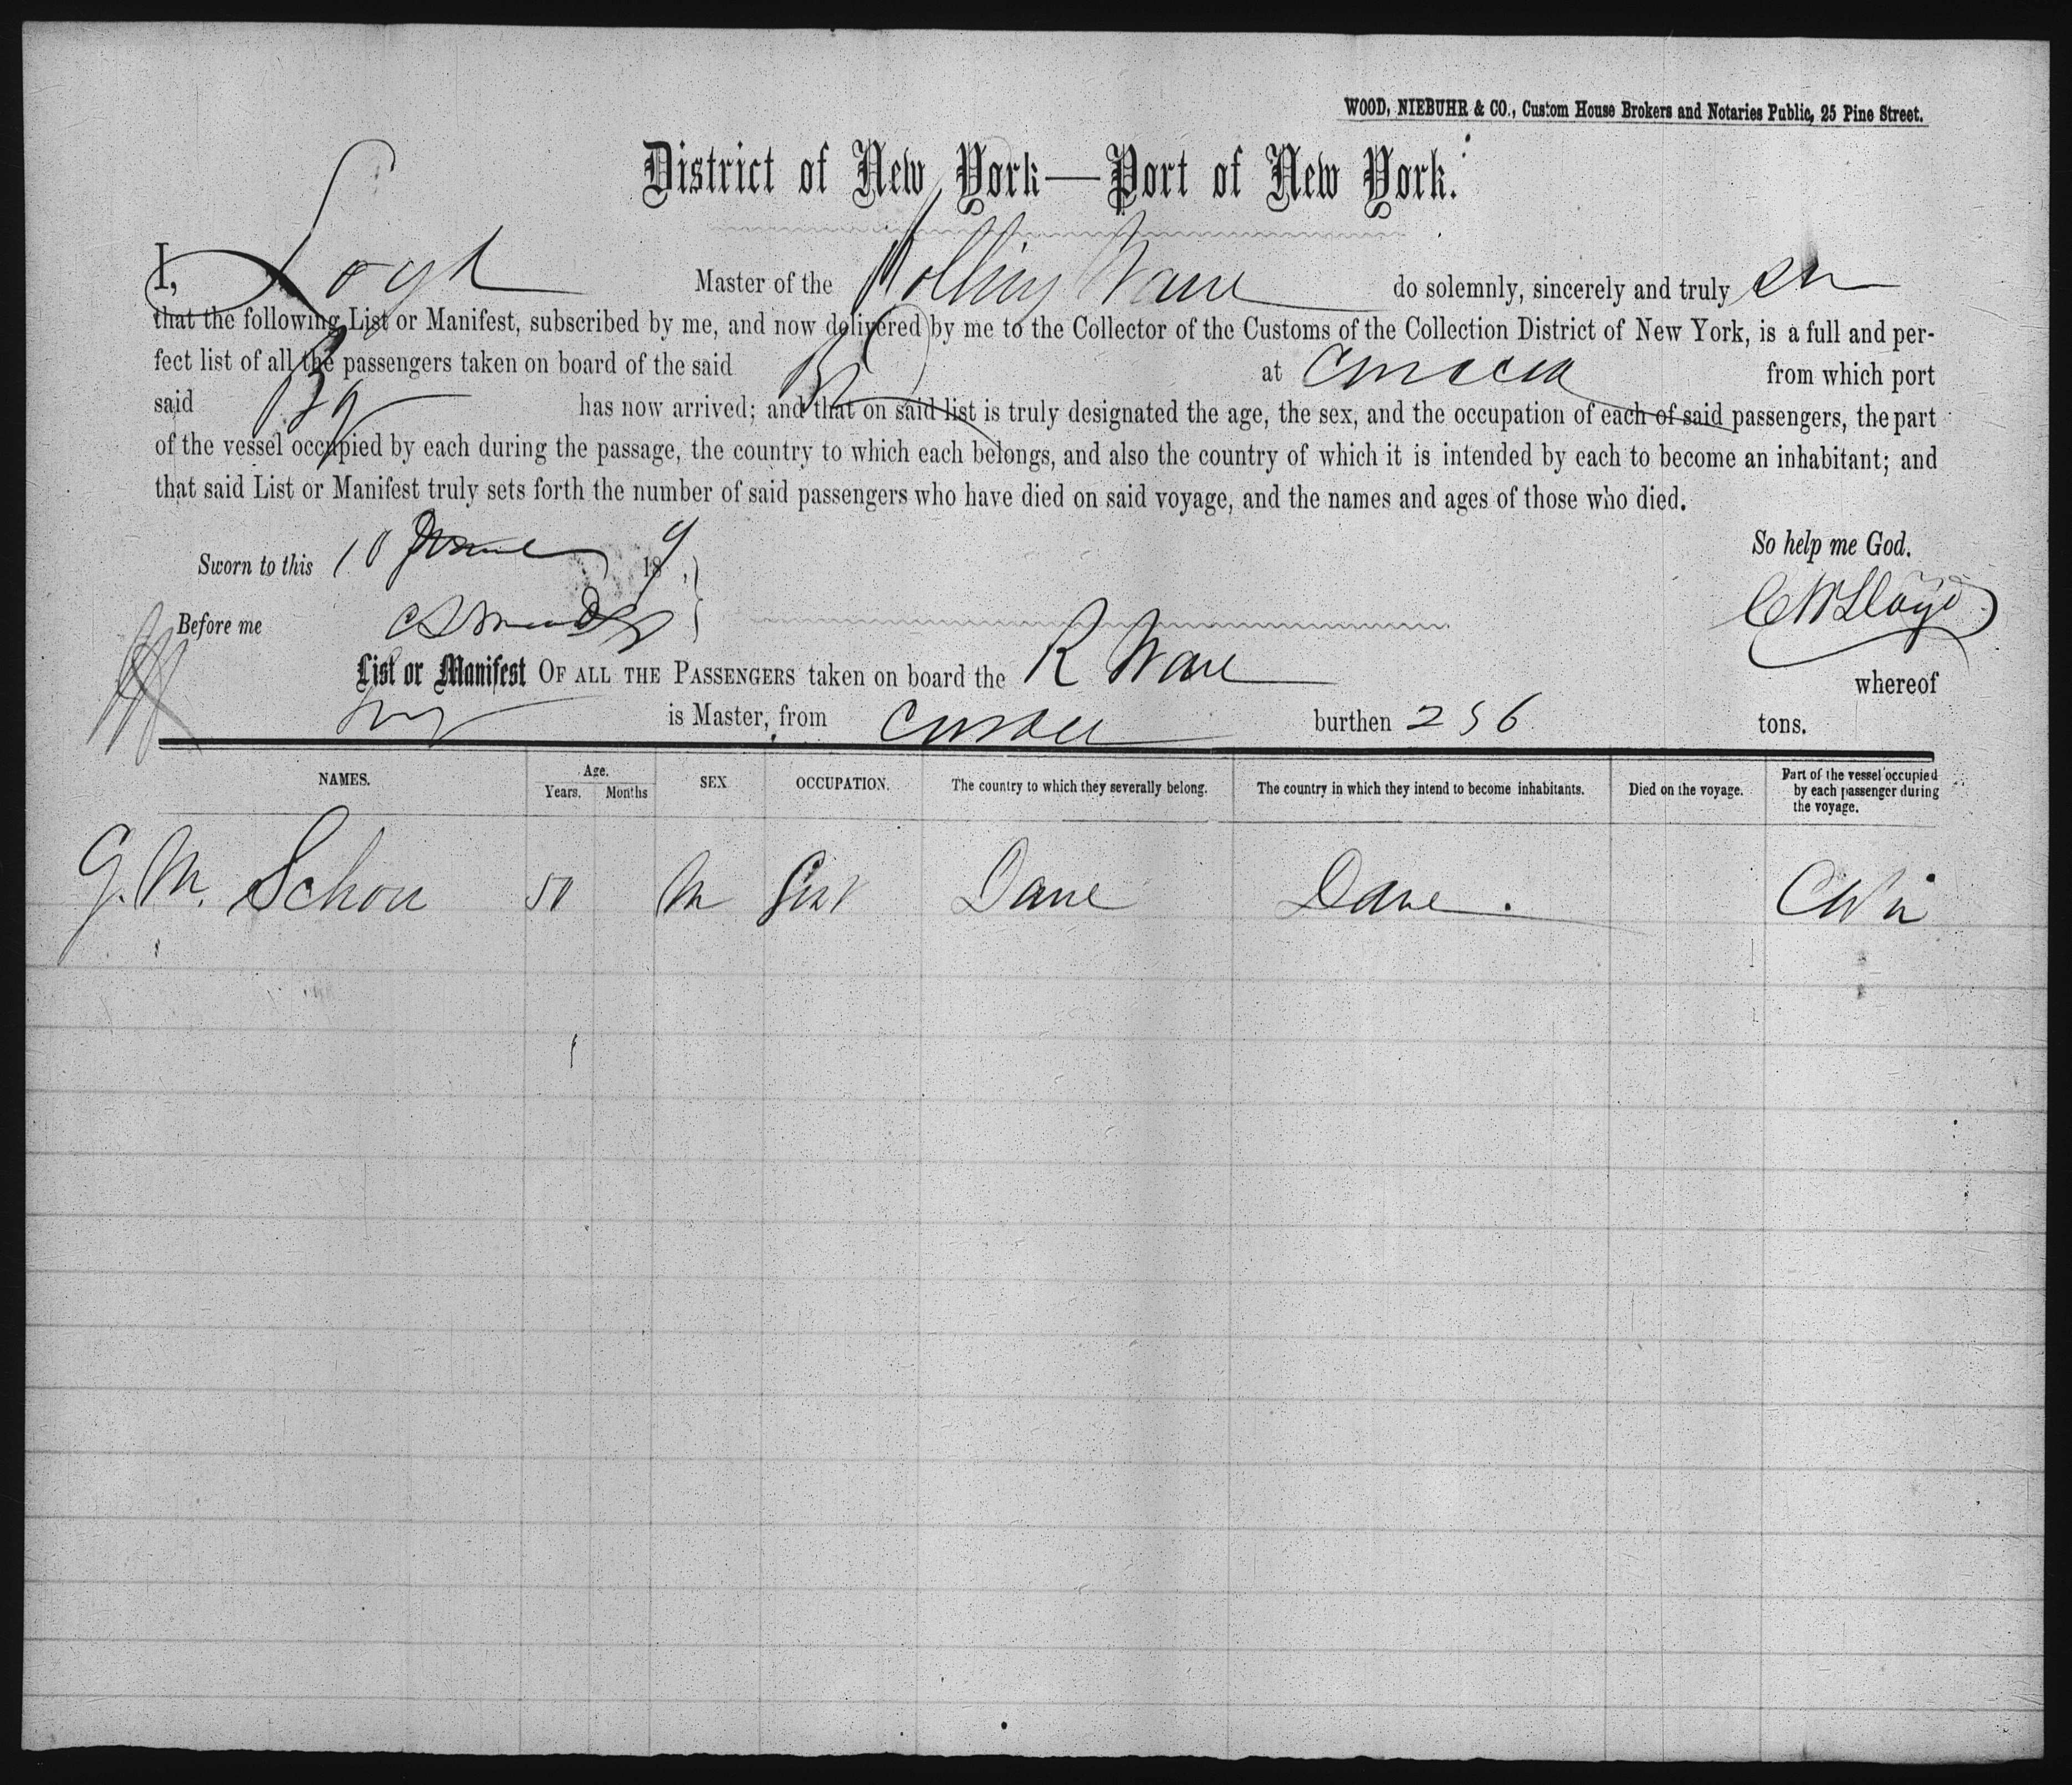 WOOD, NIEBUHR & CO., Custom House Brokers and Notaries Public, 25 Pine Street.
District of New York—Port of New York.
I, Loyd Master of the Rolling Wave do solemnly, sincerely and truly
that the following List or Manifest, subscribed by me, and now delivered by me to the Collector of the Customs of the Collection District of New York, is a full and per-
fect list of all the passengers taken on board of the said Bg at Curacoa from which port
said Bg has now arrived; and that on said list is truly designated the age, the sex, and the occupation of each of said passengers, the part
of the vessel occupied by each during the passage, the country to which each belongs, and also the country of which it is intended by each to become an inhabitant; and
that said List or Manifest truly sets forth the number of said passengers who have died on said voyage, and the names and ages of those who died.
So help me God.
Sworn to this 10 June 189
Before me
C W Lloyd
List or Manifest OF ALL THE PASSENGERS taken on board the R Wave whereof
is Master, from Curacoa burthen 256 tons.
NAMES. Age. Years. Months SEX OCCUPATION. The country to which they severally belong. The country in which they intend to become inhabitants. Died on the voyage. Part of the vessel occupied by each passenger during the voyage.
G. M. Schou 50 M Dane Dane.